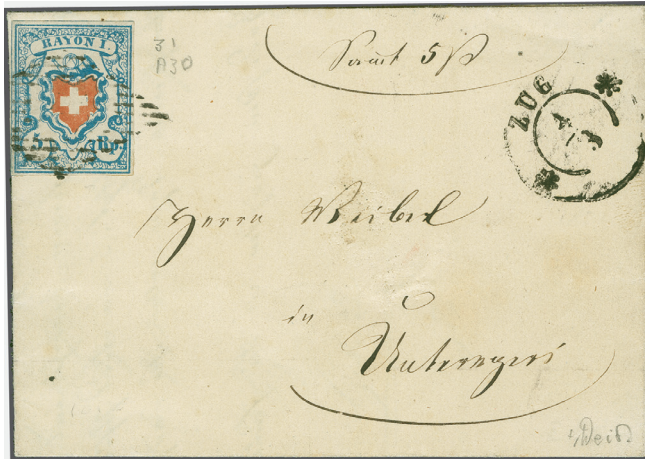 RAYON I.
5 Rp.
31
A30
5
ZUG
Herrn Weibel
in
Unteregeri